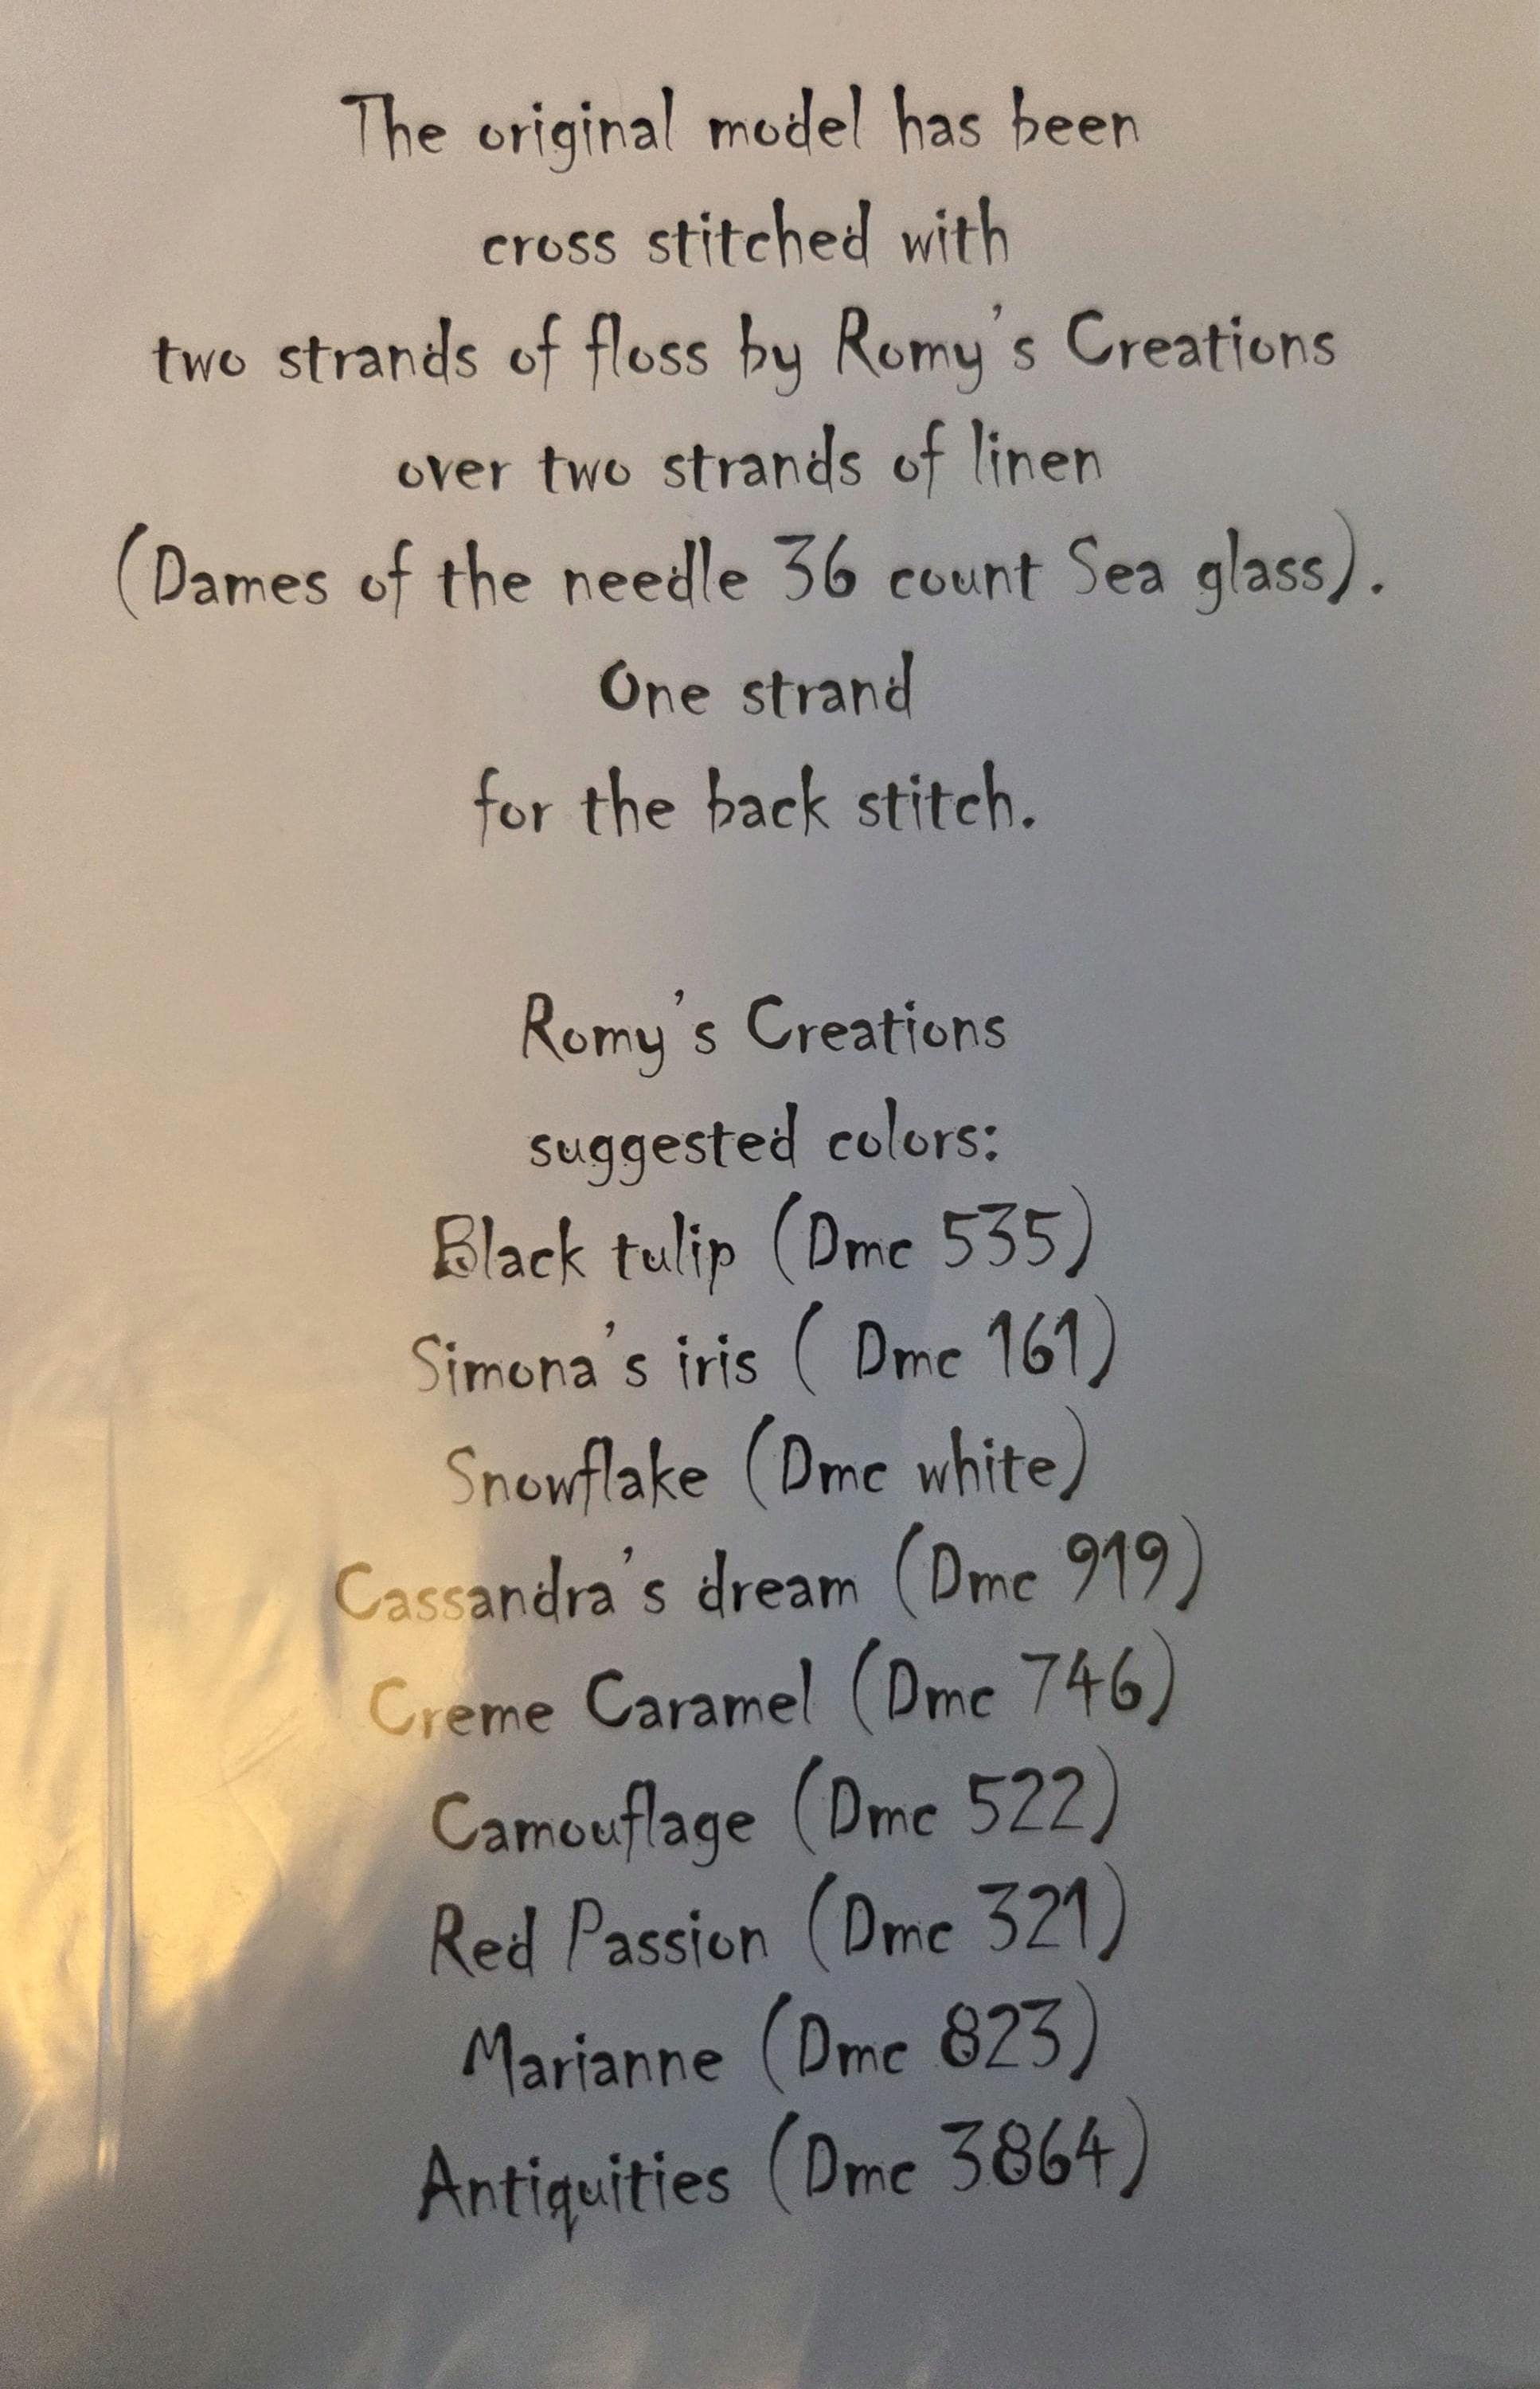 The original model has been
cross stitched with
two strands of floss by Romy's Creations
over two strands of linen
(Dames of the needle 36 count Sea glass).
One strand
for the back stitch.
Romy's Creations
suggested colors:
Black tulip (Dmc 535)
Simona's iris ( Dmc 161)
Snowflake (Dmc white)
Cassandra's dream (Dmc 919)
Creme Caramel (Dmc 746)
Camouflage (Dmc 522)
Red Passion (Dmc 321)
Marianne (Dmc 823)
Antiquities (Dmc 3864)